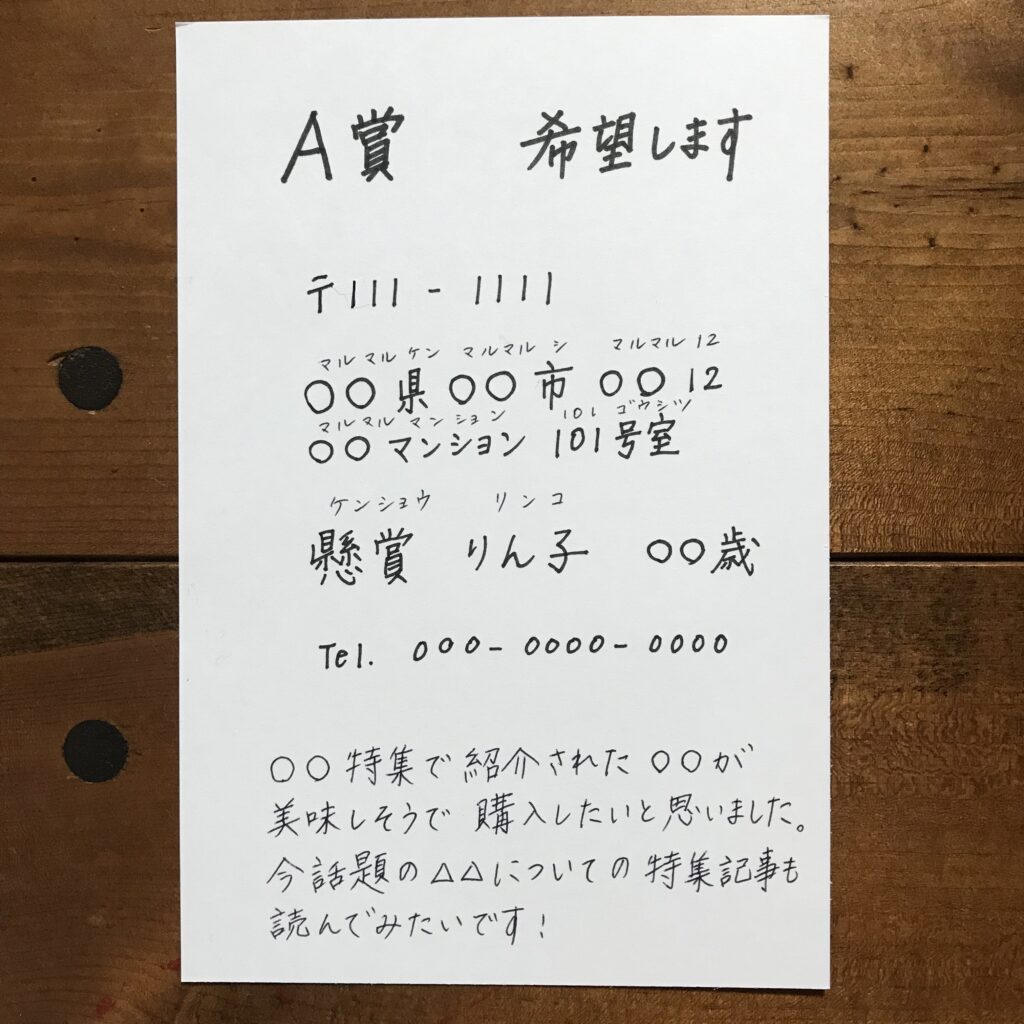 A賞　希望します
〒111-1111
マルマルケン マルマルシ マルマル12
○○県○○市 ○○12
マルマルマンション 101ゴウシツ
○○マンション 101号室
ケンショウ リンコ
懸賞 りん子 ○○歳
Tel. 000-0000-0000
○○特集で紹介された○○が
美味しそうで購入したいと思いました。
今話題の△△についての特集記事も
読んでみたいです!